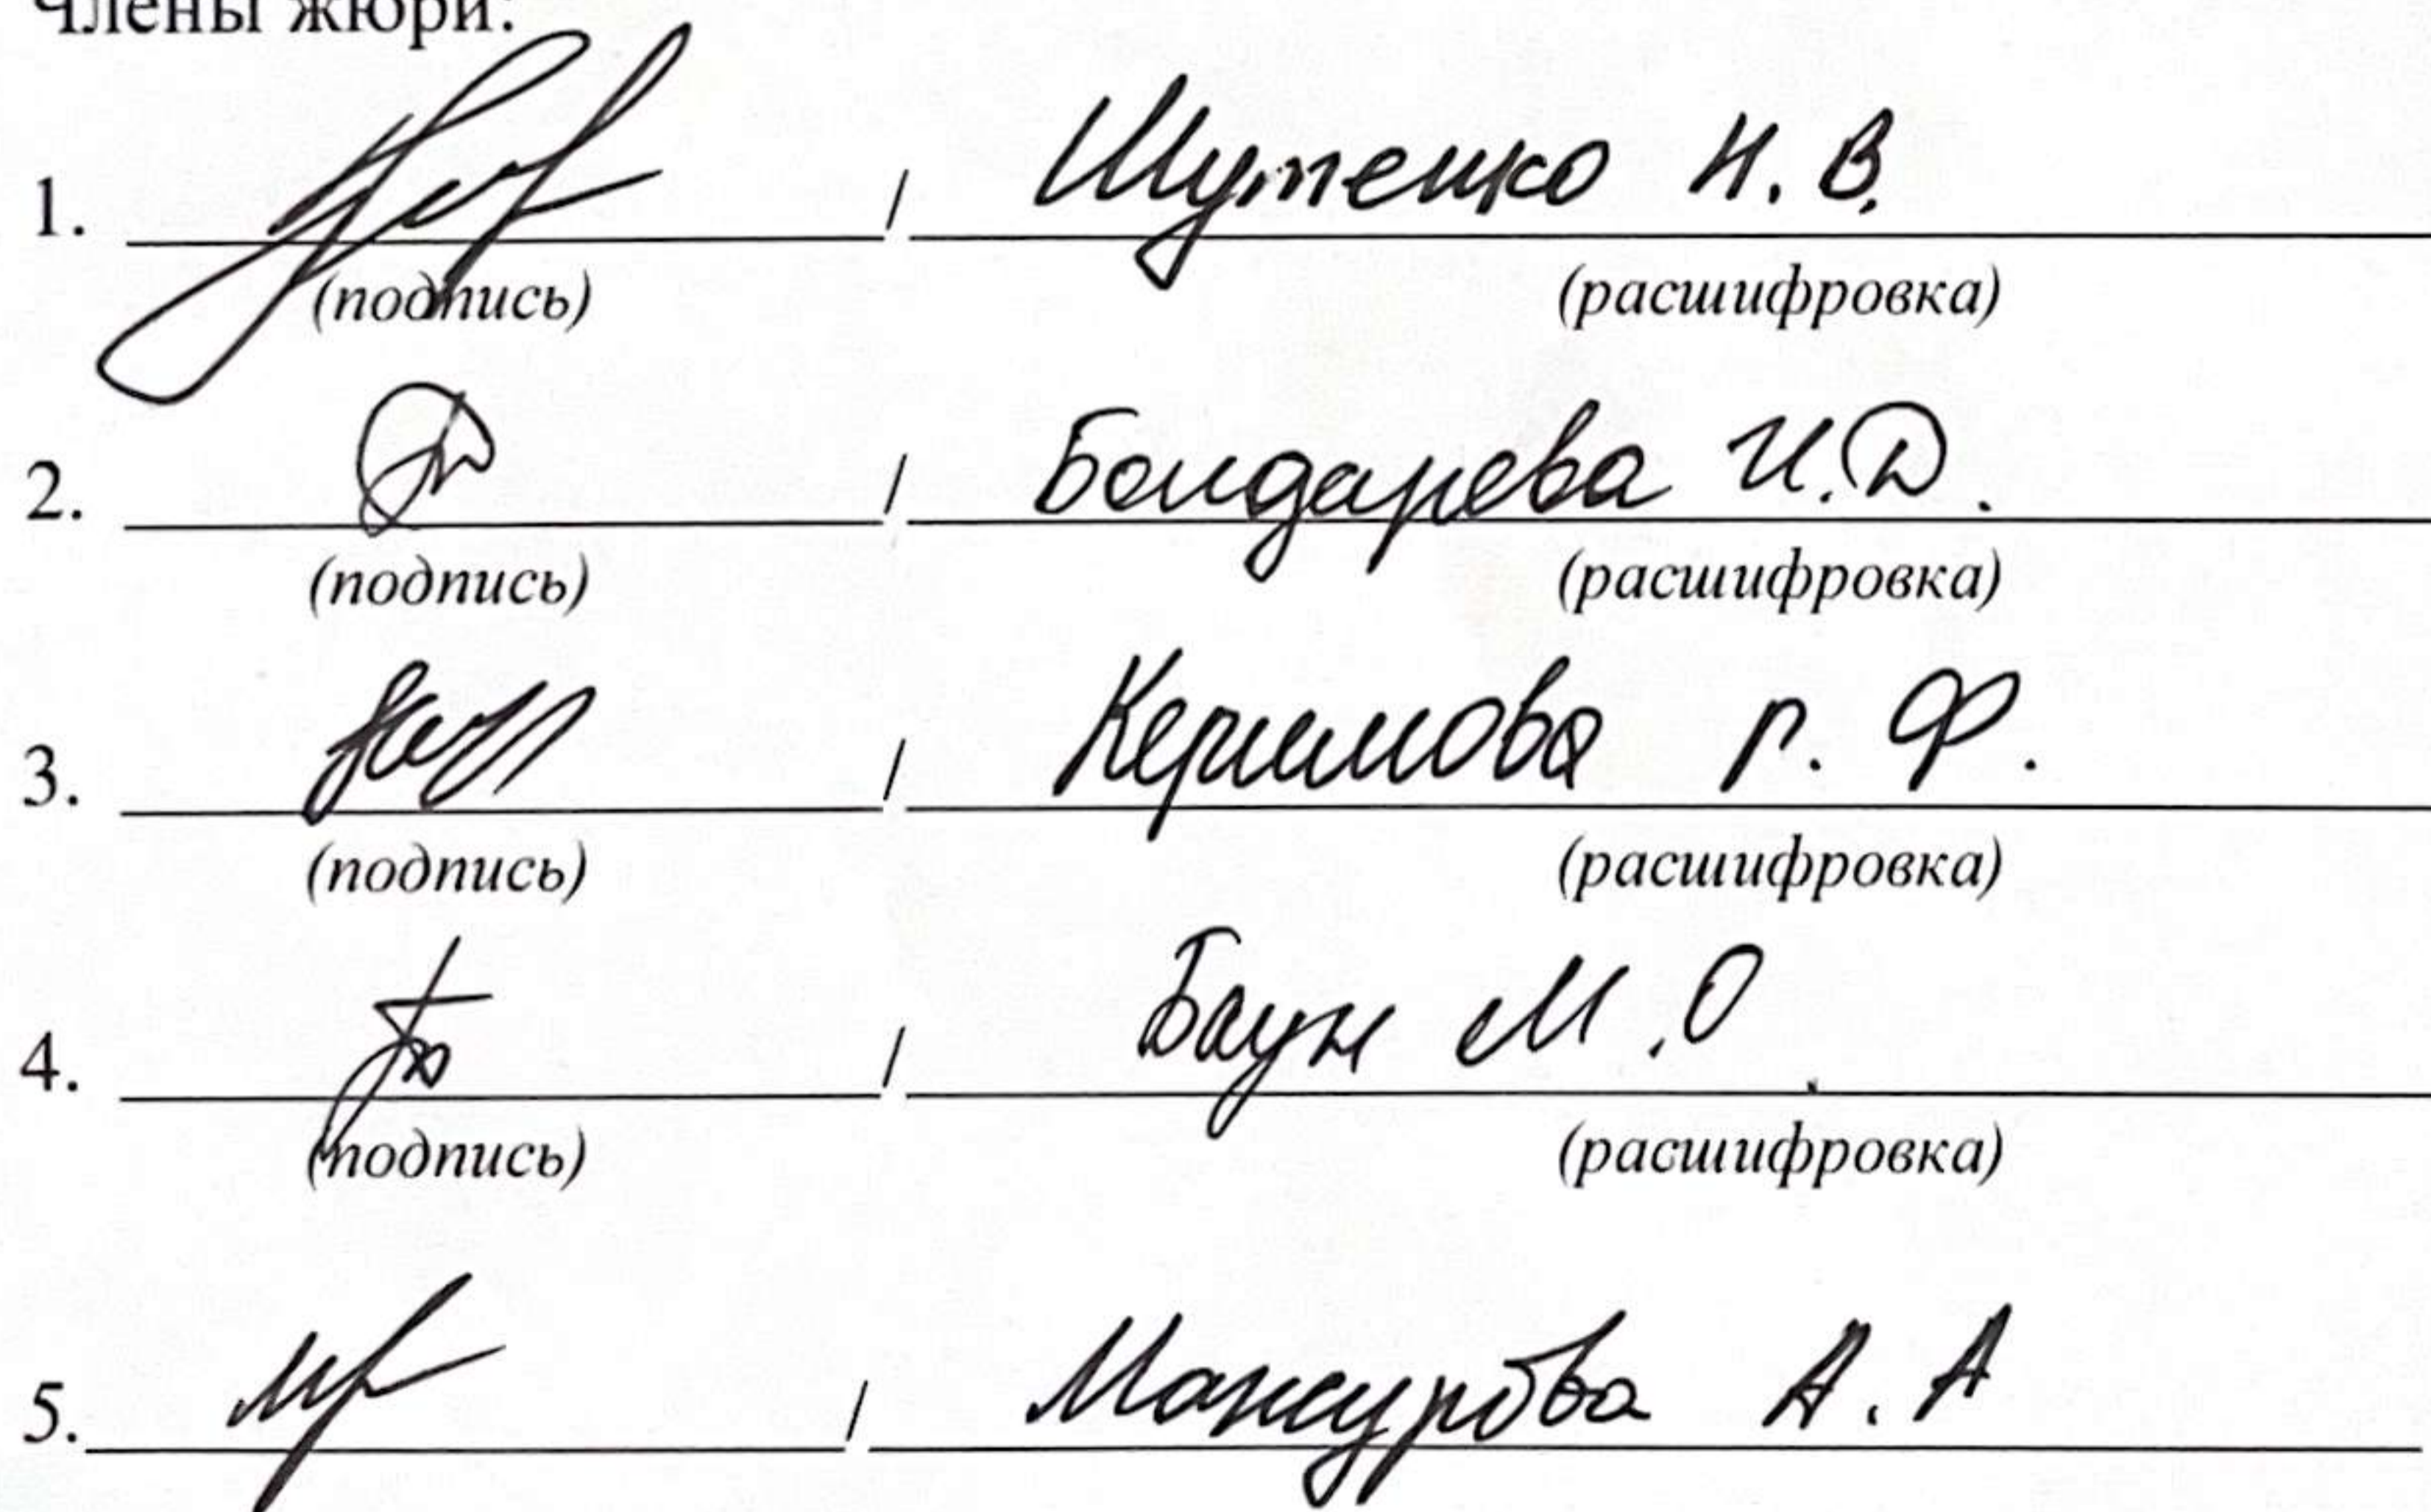 Члены жюри:
1. / Шутенко Н. В.
(подпись) (расшифровка)
2. / Бондарева И. Д.
(подпись) (расшифровка)
3. / Керимова Г. Ф.
(подпись) (расшифровка)
4. / Баун М. О.
(подпись) (расшифровка)
5. / Мансурова А. А